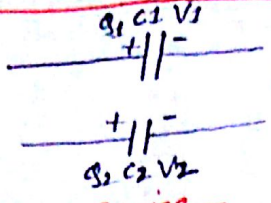 Q1 C1 V1
+ -
+ -
Q2 C2 V2